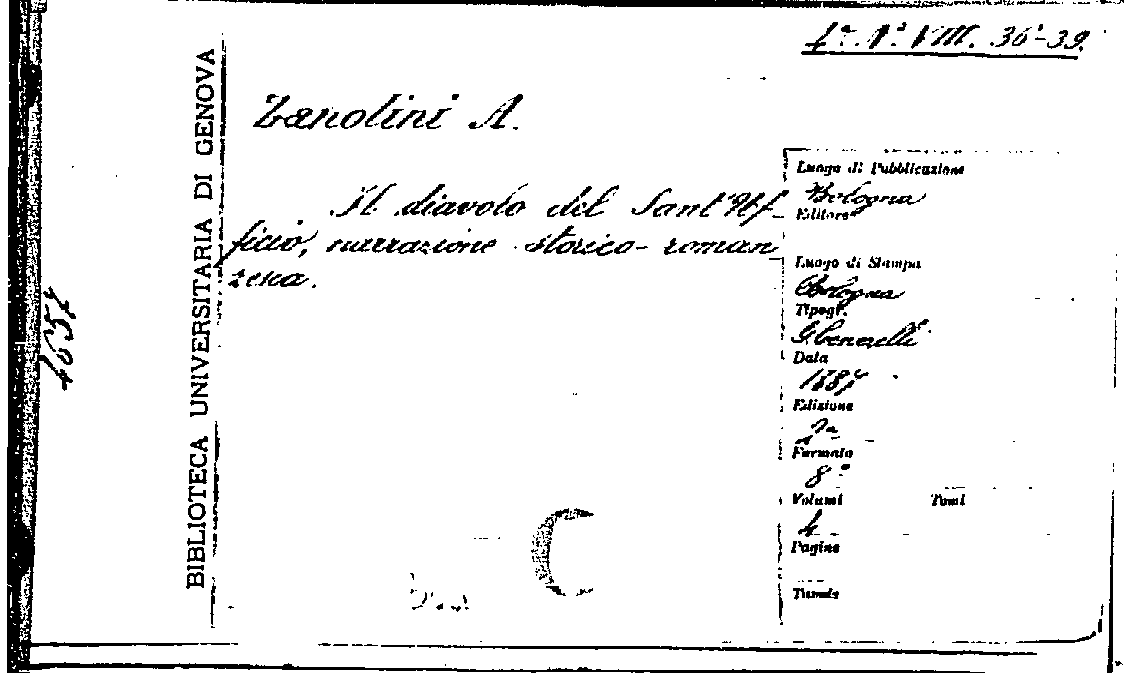 VIII. 36-39.
BIBLIOTECA UNIVERSITARIA DI GENOVA
4657
Zanolini A.
Il diavolo del Sant'Uf-
ficio, narrazione storico-roman
zesca.
Luogo di Pubblicazione
Bologna
Editore
Luogo di Stampa
Bologna
Tipogr.
G. Cenerelli
Data
1887
Edizione
2ª
Formato
8º
Volumi Tomi
4
Pagine
Tavole
C